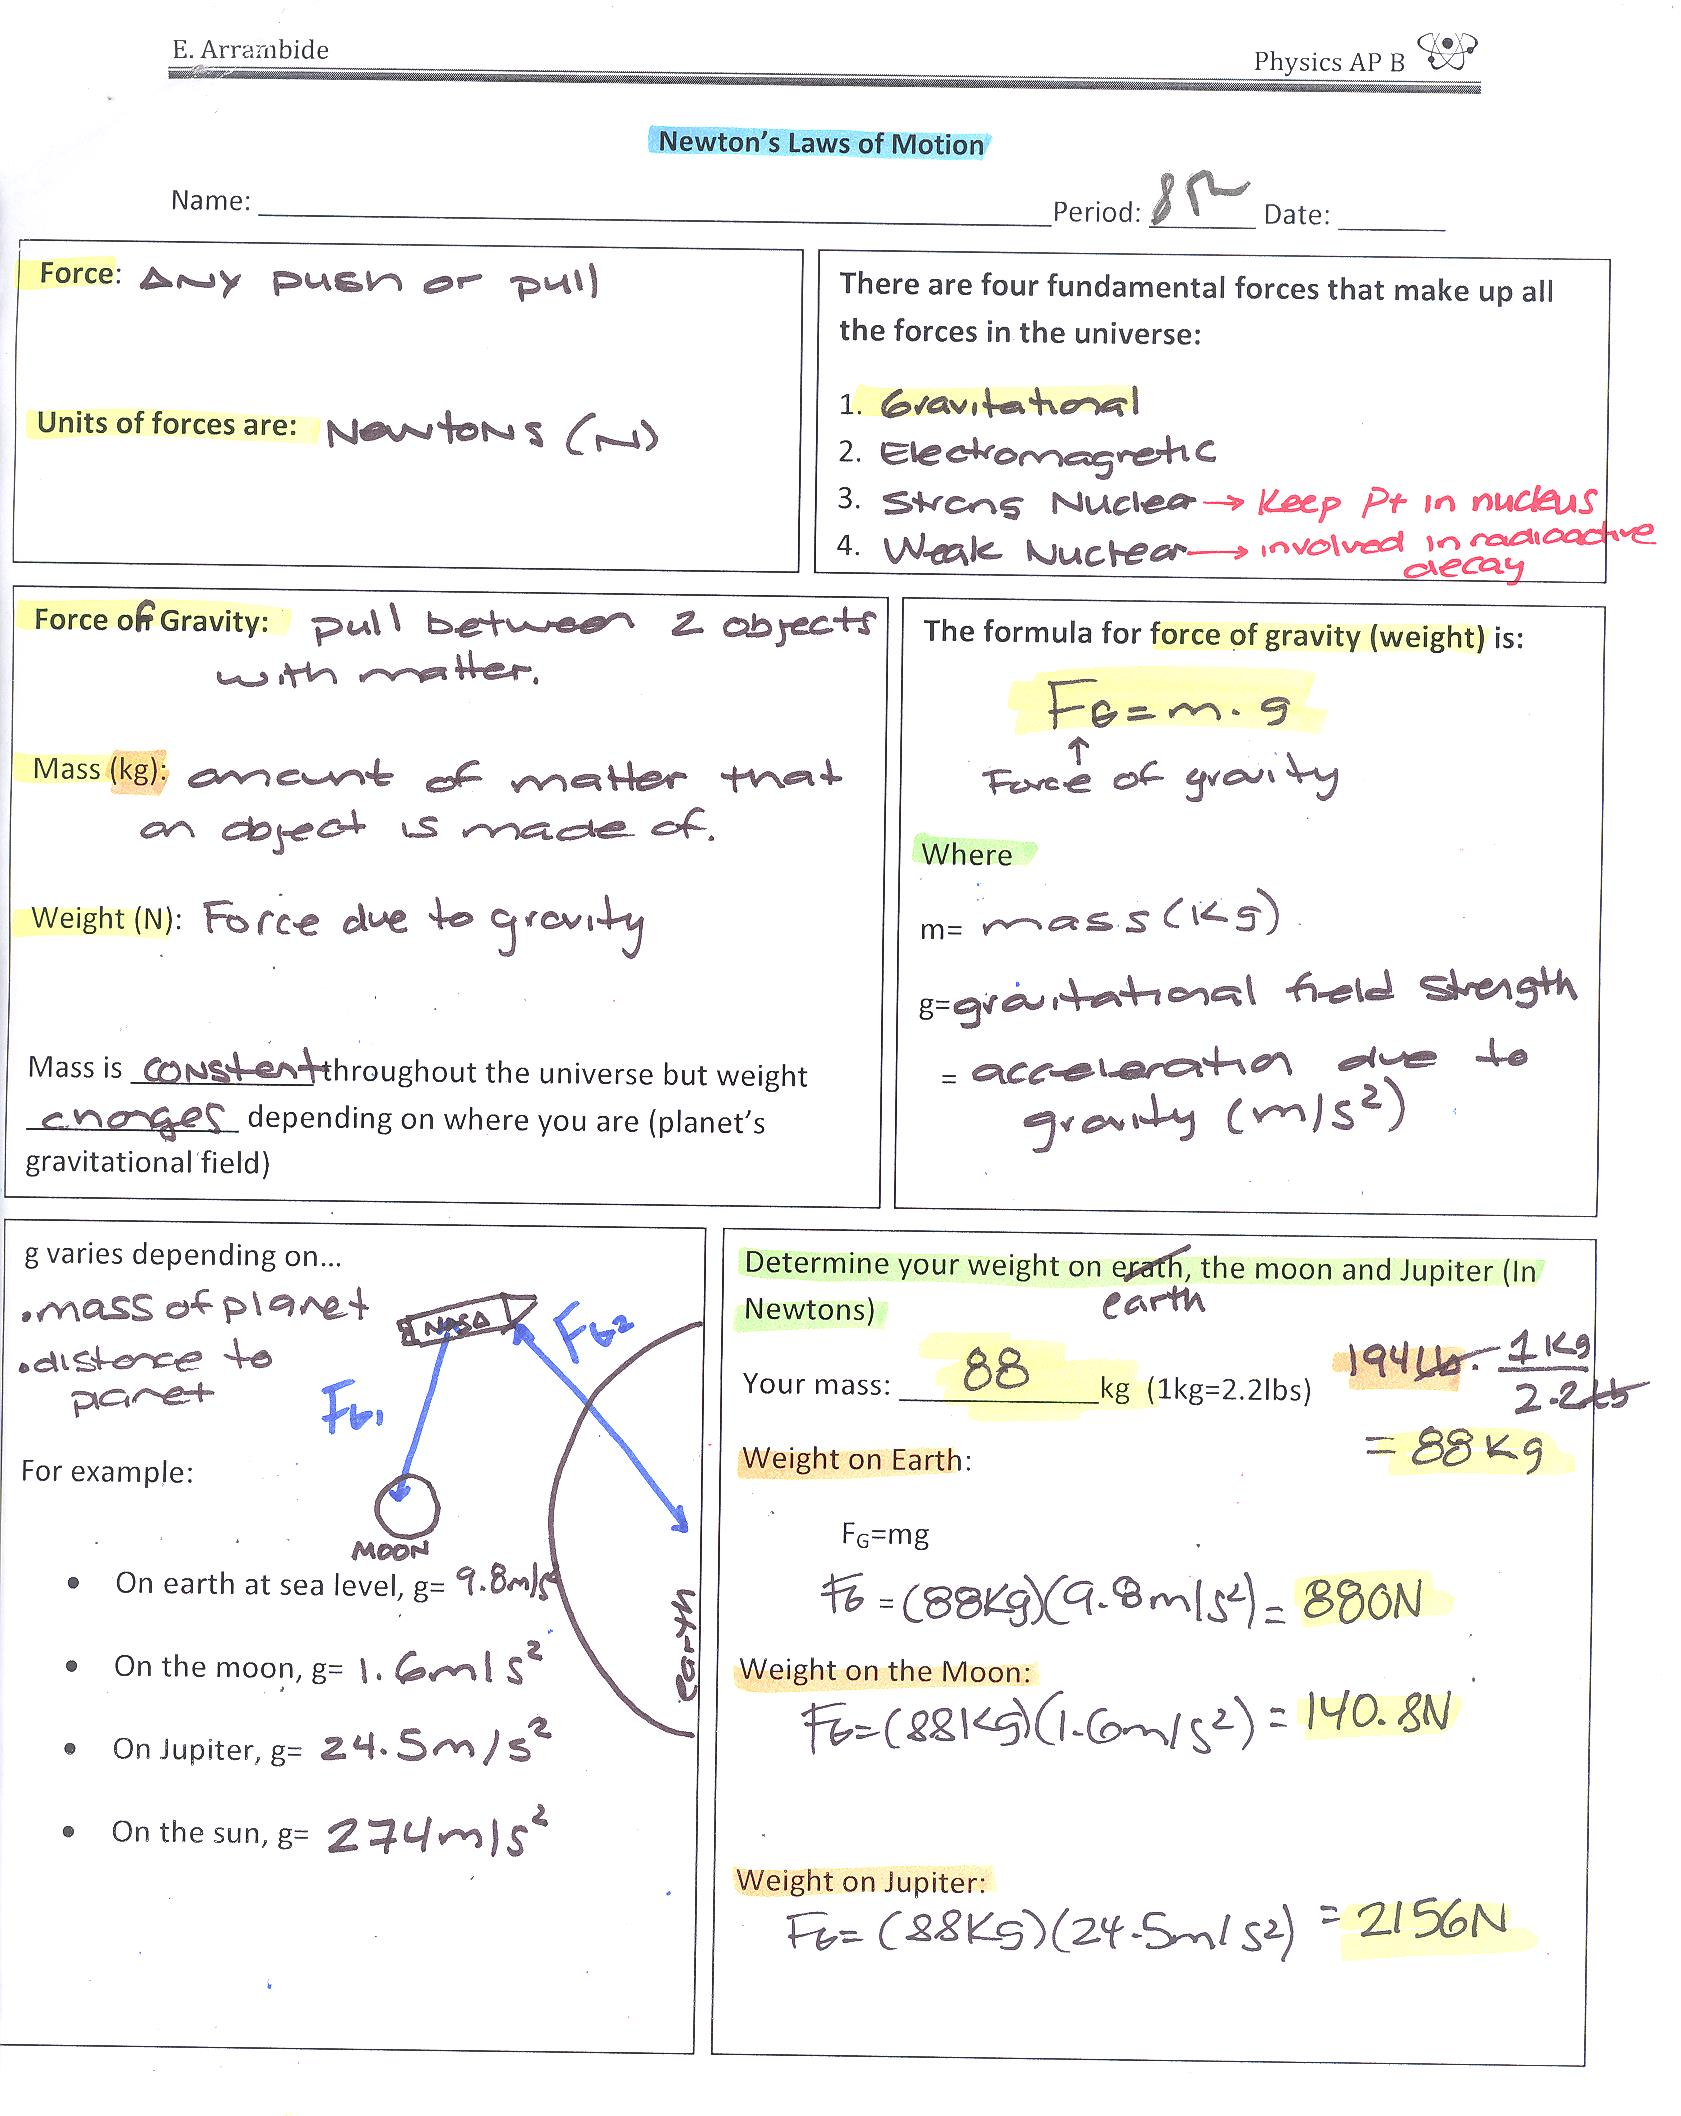 E. Arrambide
Physics AP B
Newton's Laws of Motion
Name: Period: Date:
Force: ANY push or pull
Units of forces are: Newtons (N)
There are four fundamental forces that make up all
the forces in the universe:
1. Gravitational
2. Electromagnetic
3. Strong Nuclear → Keep P+ in nucleus
4. Weak Nuclear → involved in radioactive
decay
Force of Gravity: pull between 2 objects
with matter.
Mass (kg): amount of matter that
an object is made of.
Weight (N): Force due to gravity
Mass is constent throughout the universe but weight
changes depending on where you are (planet's
gravitational field)
The formula for force of gravity (weight) is:
FG = m · g
↑
Force of gravity
Where
m= mass (Kg)
g= gravitational field strength
= acceleration due to
gravity (m/s²)
g varies depending on...
• mass of planet
• distance to
planet
NASA
FG2
FG1
For example:
MOON
earth
• On earth at sea level, g= 9.8m/s²
• On the moon, g= 1.6m/s²
• On Jupiter, g= 24.5m/s²
• On the sun, g= 274m/s²
Determine your weight on erath, the moon and Jupiter (In
earth
Newtons)
Your mass: 88 kg (1kg=2.2lbs)
194 lb · 1Kg / 2.2 lb
= 88Kg
Weight on Earth:
FG=mg
FG = (88Kg)(9.8m/s²) = 880N
Weight on the Moon:
FG = (88Kg)(1.6m/s²) = 140.8N
Weight on Jupiter:
FG = (88Kg)(24.5m/s²) = 2156N